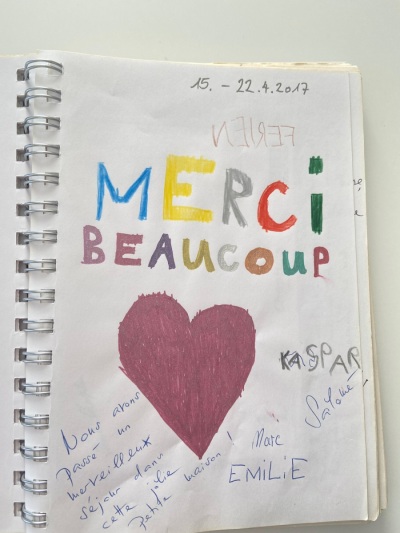 15. - 22.4.2017
FERIEN
MERCi
BEAUCOUP
KASPAR
Salomé
Nous avons
passé un
merveilleux
séjour dans
cette jolie
petite maison !
Marc
EMiLiE